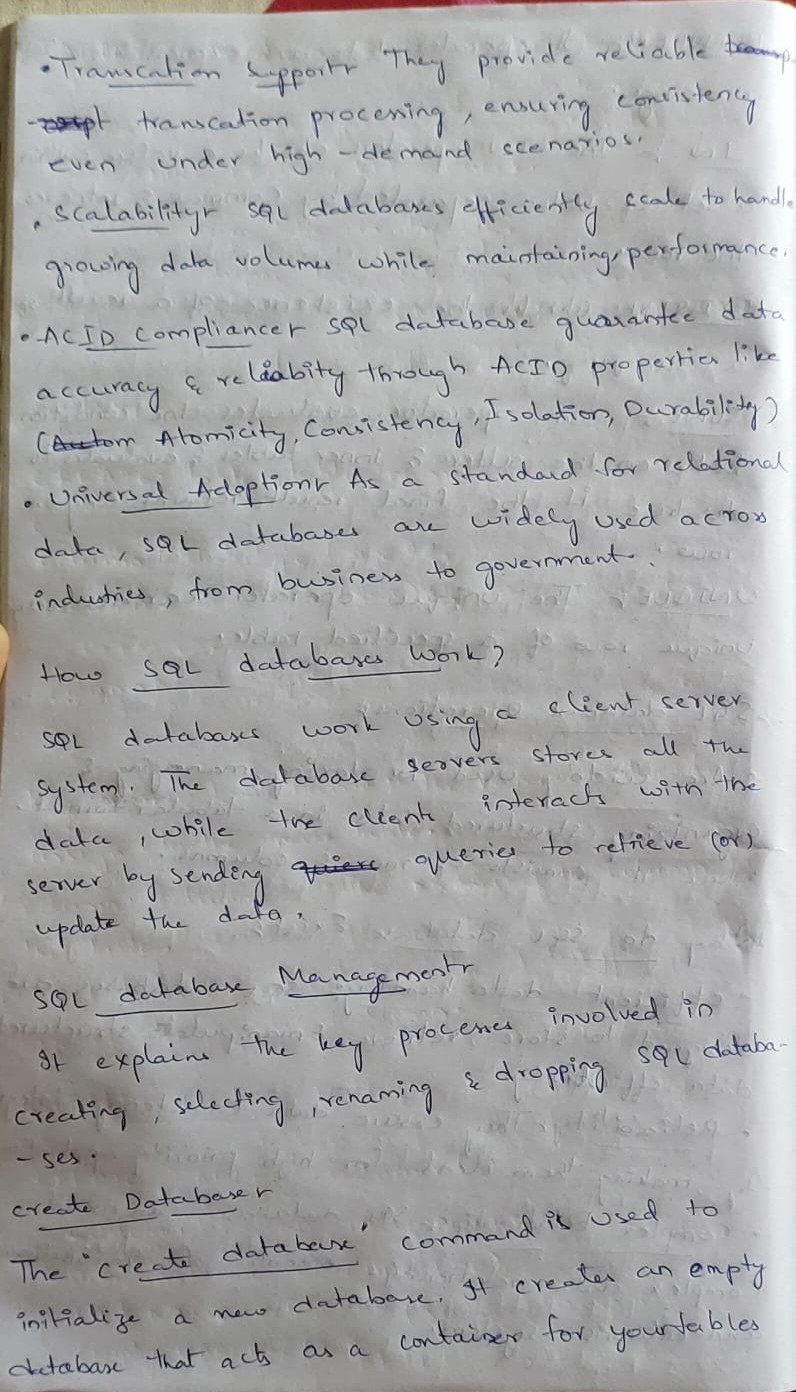 • Transcation Support:- They provide reliable
transcation processing, ensuring consistency
even under high-demand scenarios.
• Scalability:- SQL databases efficiently scale to handle
growing data volumes while maintaining performance.
• ACID compliance:- SQL database guarantee data
accuracy & reliabity through ACID properties like
(Atomicity, Consistency, Isolation, Durability)
• Universal Adoption:- As a standard for relational
data, SQL databases are widely used across
industries, from business to government.
How SQL databases work?
SQL databases work using a client server
system. The database servers stores all the
data, while the clients interacts with the
server by sending queries to retrieve (or)
update the data.
SQL database Management:-
It explains the key processes involved in
creating, selecting, renaming & dropping SQL databa-
-ses.
create Database:-
The "create database" command is used to
initialize a new database. It creates an empty
database that acts as a container for your tables